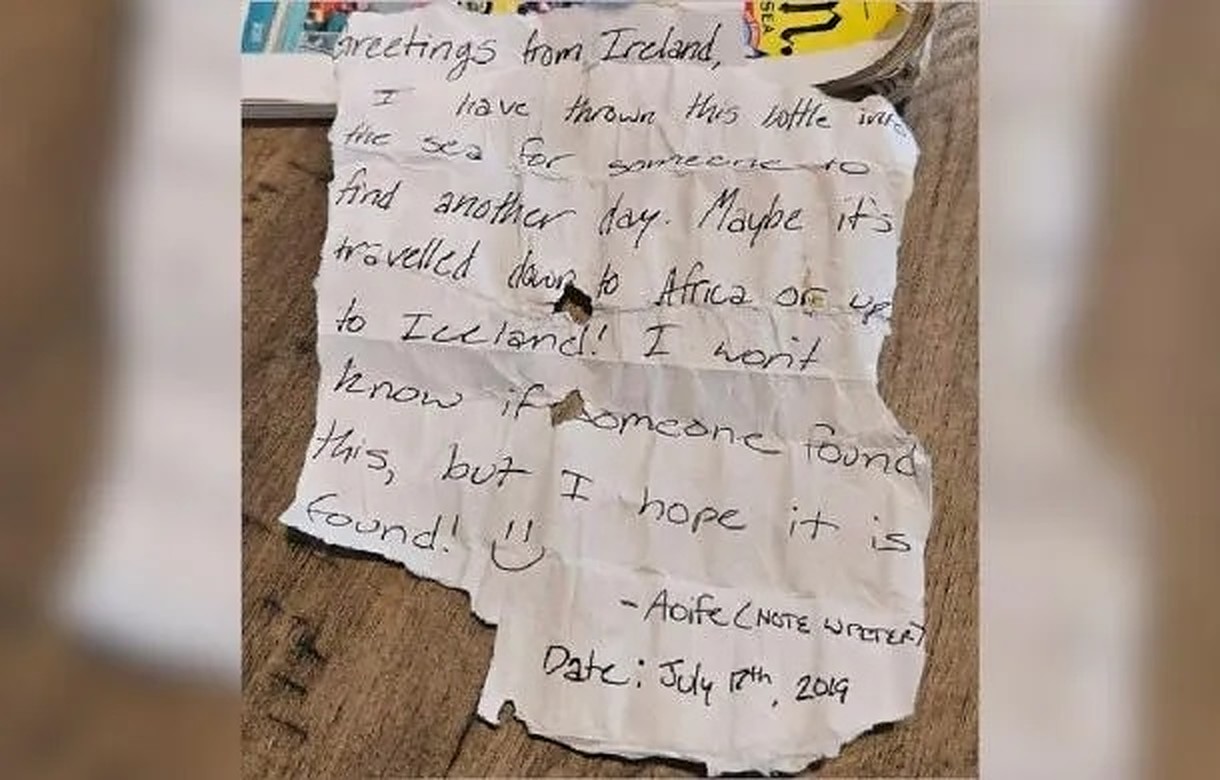 Greetings from Ireland,
I have thrown this bottle into
the sea for someone to
find another day. Maybe it's
travelled down to Africa or up
to Iceland! I won't
know if someone found
this, but I hope it is
found!
-Aoife (NOTE WRITER)
Date: July 17th, 2019
SEA
n.